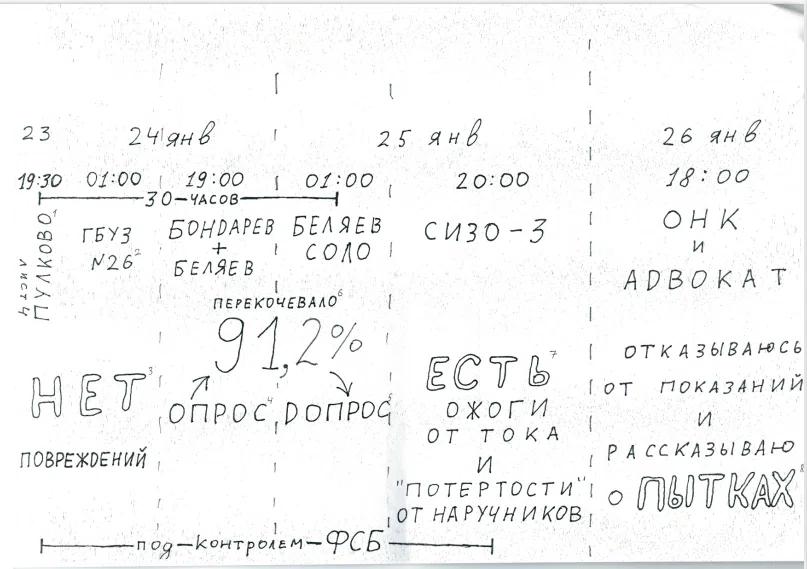 23 24 янв 25 янв 26 янв
19:30 01:00 19:00 01:00 20:00 18:00
30-ЧАСОВ
ПУЛКОВО¹
ЛИСТ 4
ГБУЗ
N26²
БОНДАРЕВ
+
БЕЛЯЕВ
БЕЛЯЕВ
СОЛО
СИЗО-3
ОНК
И
АДВОКАТ
ПЕРЕКОЧЕВАЛО⁶
91,2%
ОПРОС⁴, ДОПРОС⁵
НЕТ³
ПОВРЕЖДЕНИЙ
ЕСТЬ⁷
ОЖОГИ
ОТ ТОКА
И
"ПОТЕРТОСТИ"
ОТ НАРУЧНИКОВ
ОТКАЗЫВАЮСЬ
ОТ ПОКАЗАНИЙ
И
РАССКАЗЫВАЮ
О ПЫТКАХ⁸
под-контролем-ФСБ